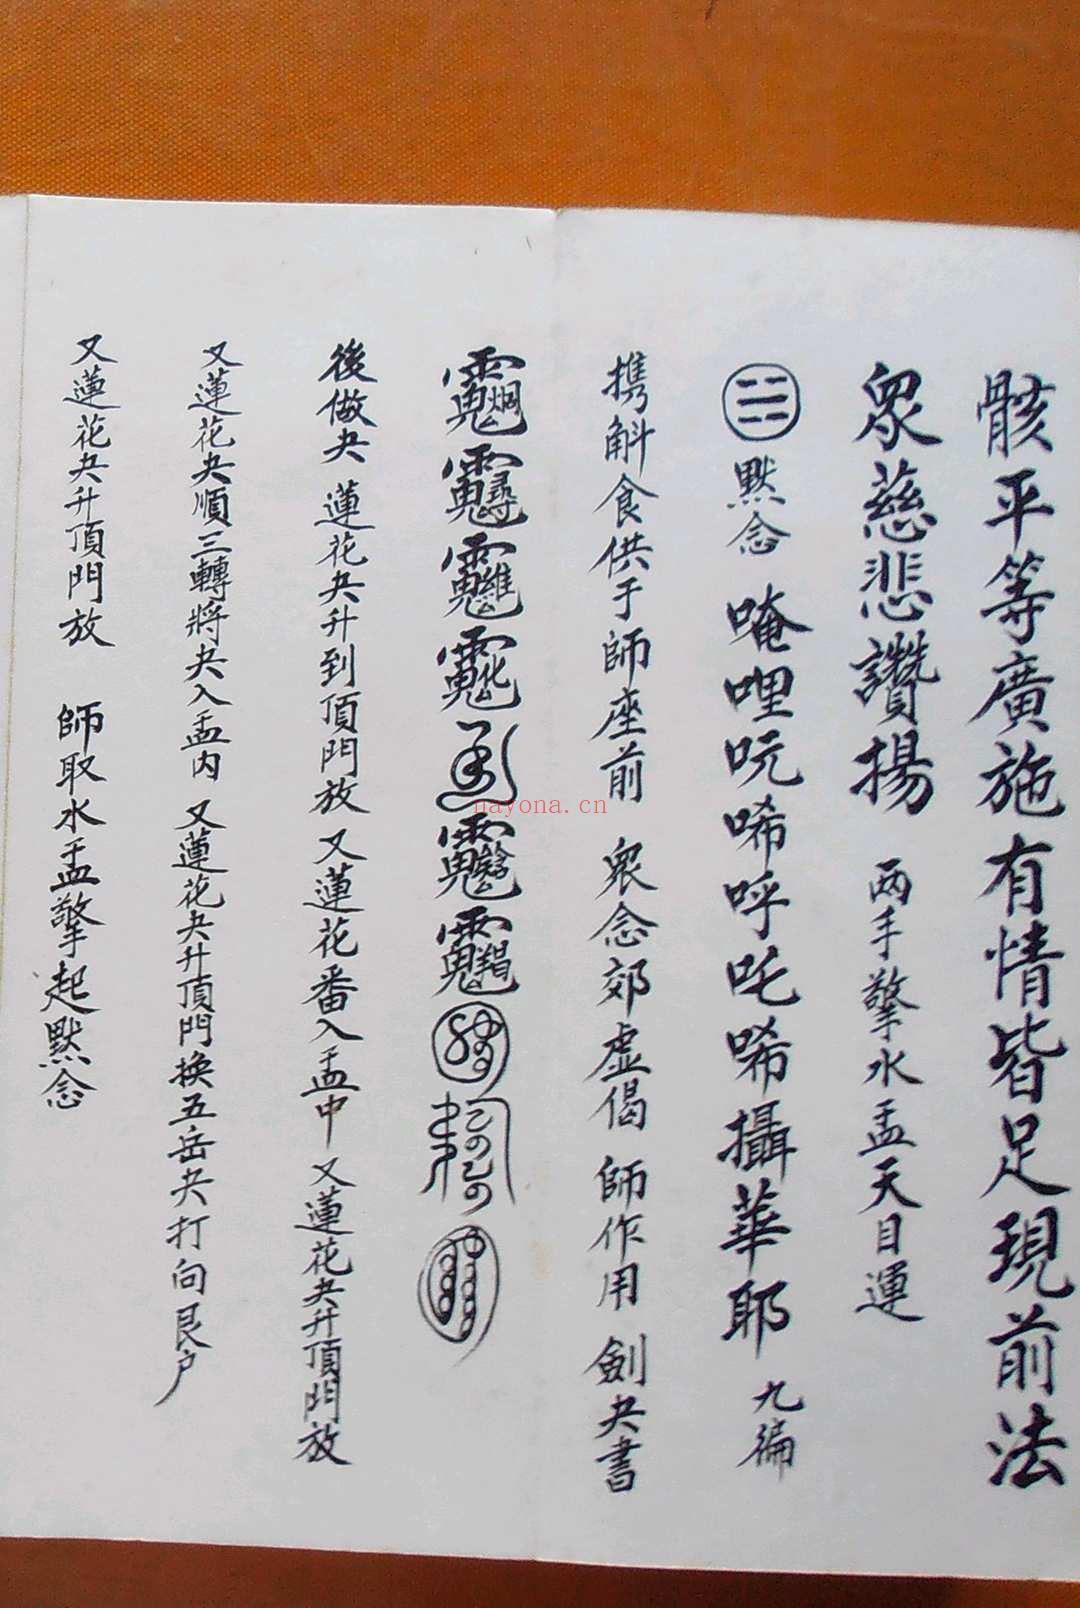 骸平等廣施有情皆足現前法
眾慈悲讚揚 兩手擎水盂天目運
默念 唵哩吮唏呼吒唏攝華耶 九徧
携斛食供于師座前 眾念郊虛偈 師作用 劍夬書
後做夬 蓮花夬升到頂門放 又蓮花番入盂中 又蓮花夬升頂門放
又蓮花夬順三轉將夬入盂內 又蓮花夬升頂門換五岳夬打向艮户
又蓮花夬升頂門放 師取水盂擎起默念
nayona.cn